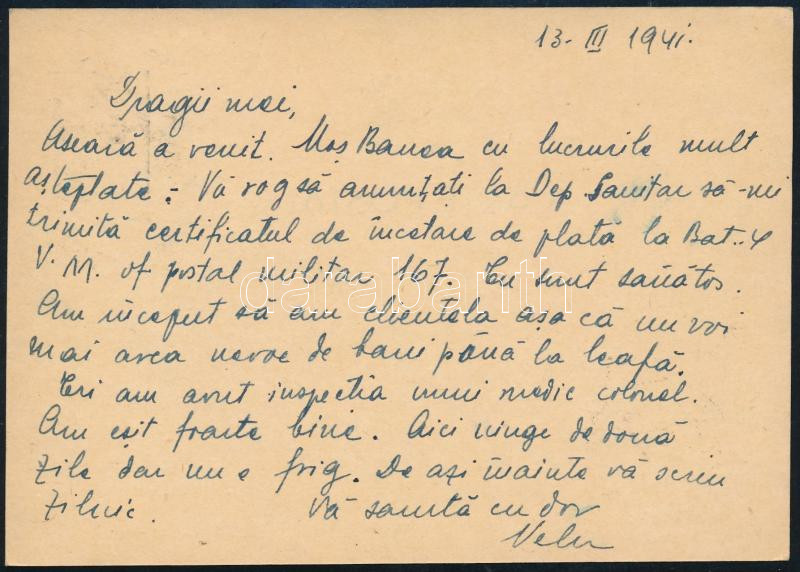 13-III 1941.
Dragii mei,
Aseară a venit. Moș Banea cu lucrurile mult
așteptate. Vă rog să anunțați la Dep Sanitar să-mi
trimită certificatul de încetare de plată la Bat. 4
V.M. of postal militar 167. Eu sunt sănătos.
Am început să am clientela așa că nu voi
mai avea nevoe de bani până la leafă.
Eri am avut inspectia unui medic colonel.
Am eșit foarte bine. Aici ninge de două
zile dar nu e frig. De azi înainte vă scriu
zilnic. Vă sarută cu dor
darabanth